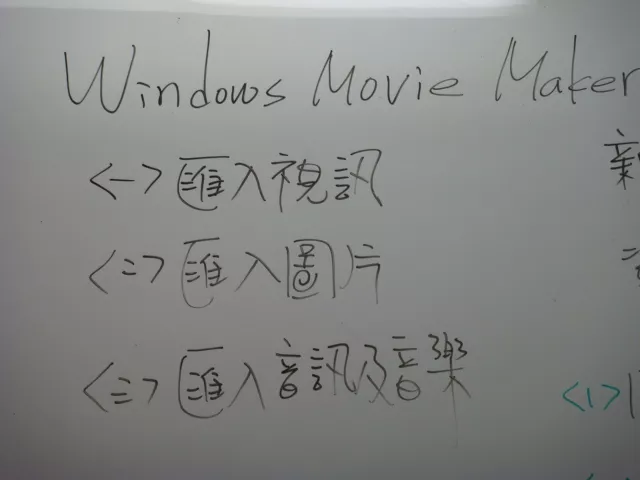 Windows Movie Maker
<一> 匯入視訊
<二> 匯入圖片
<三> 匯入音訊及音樂
<1>